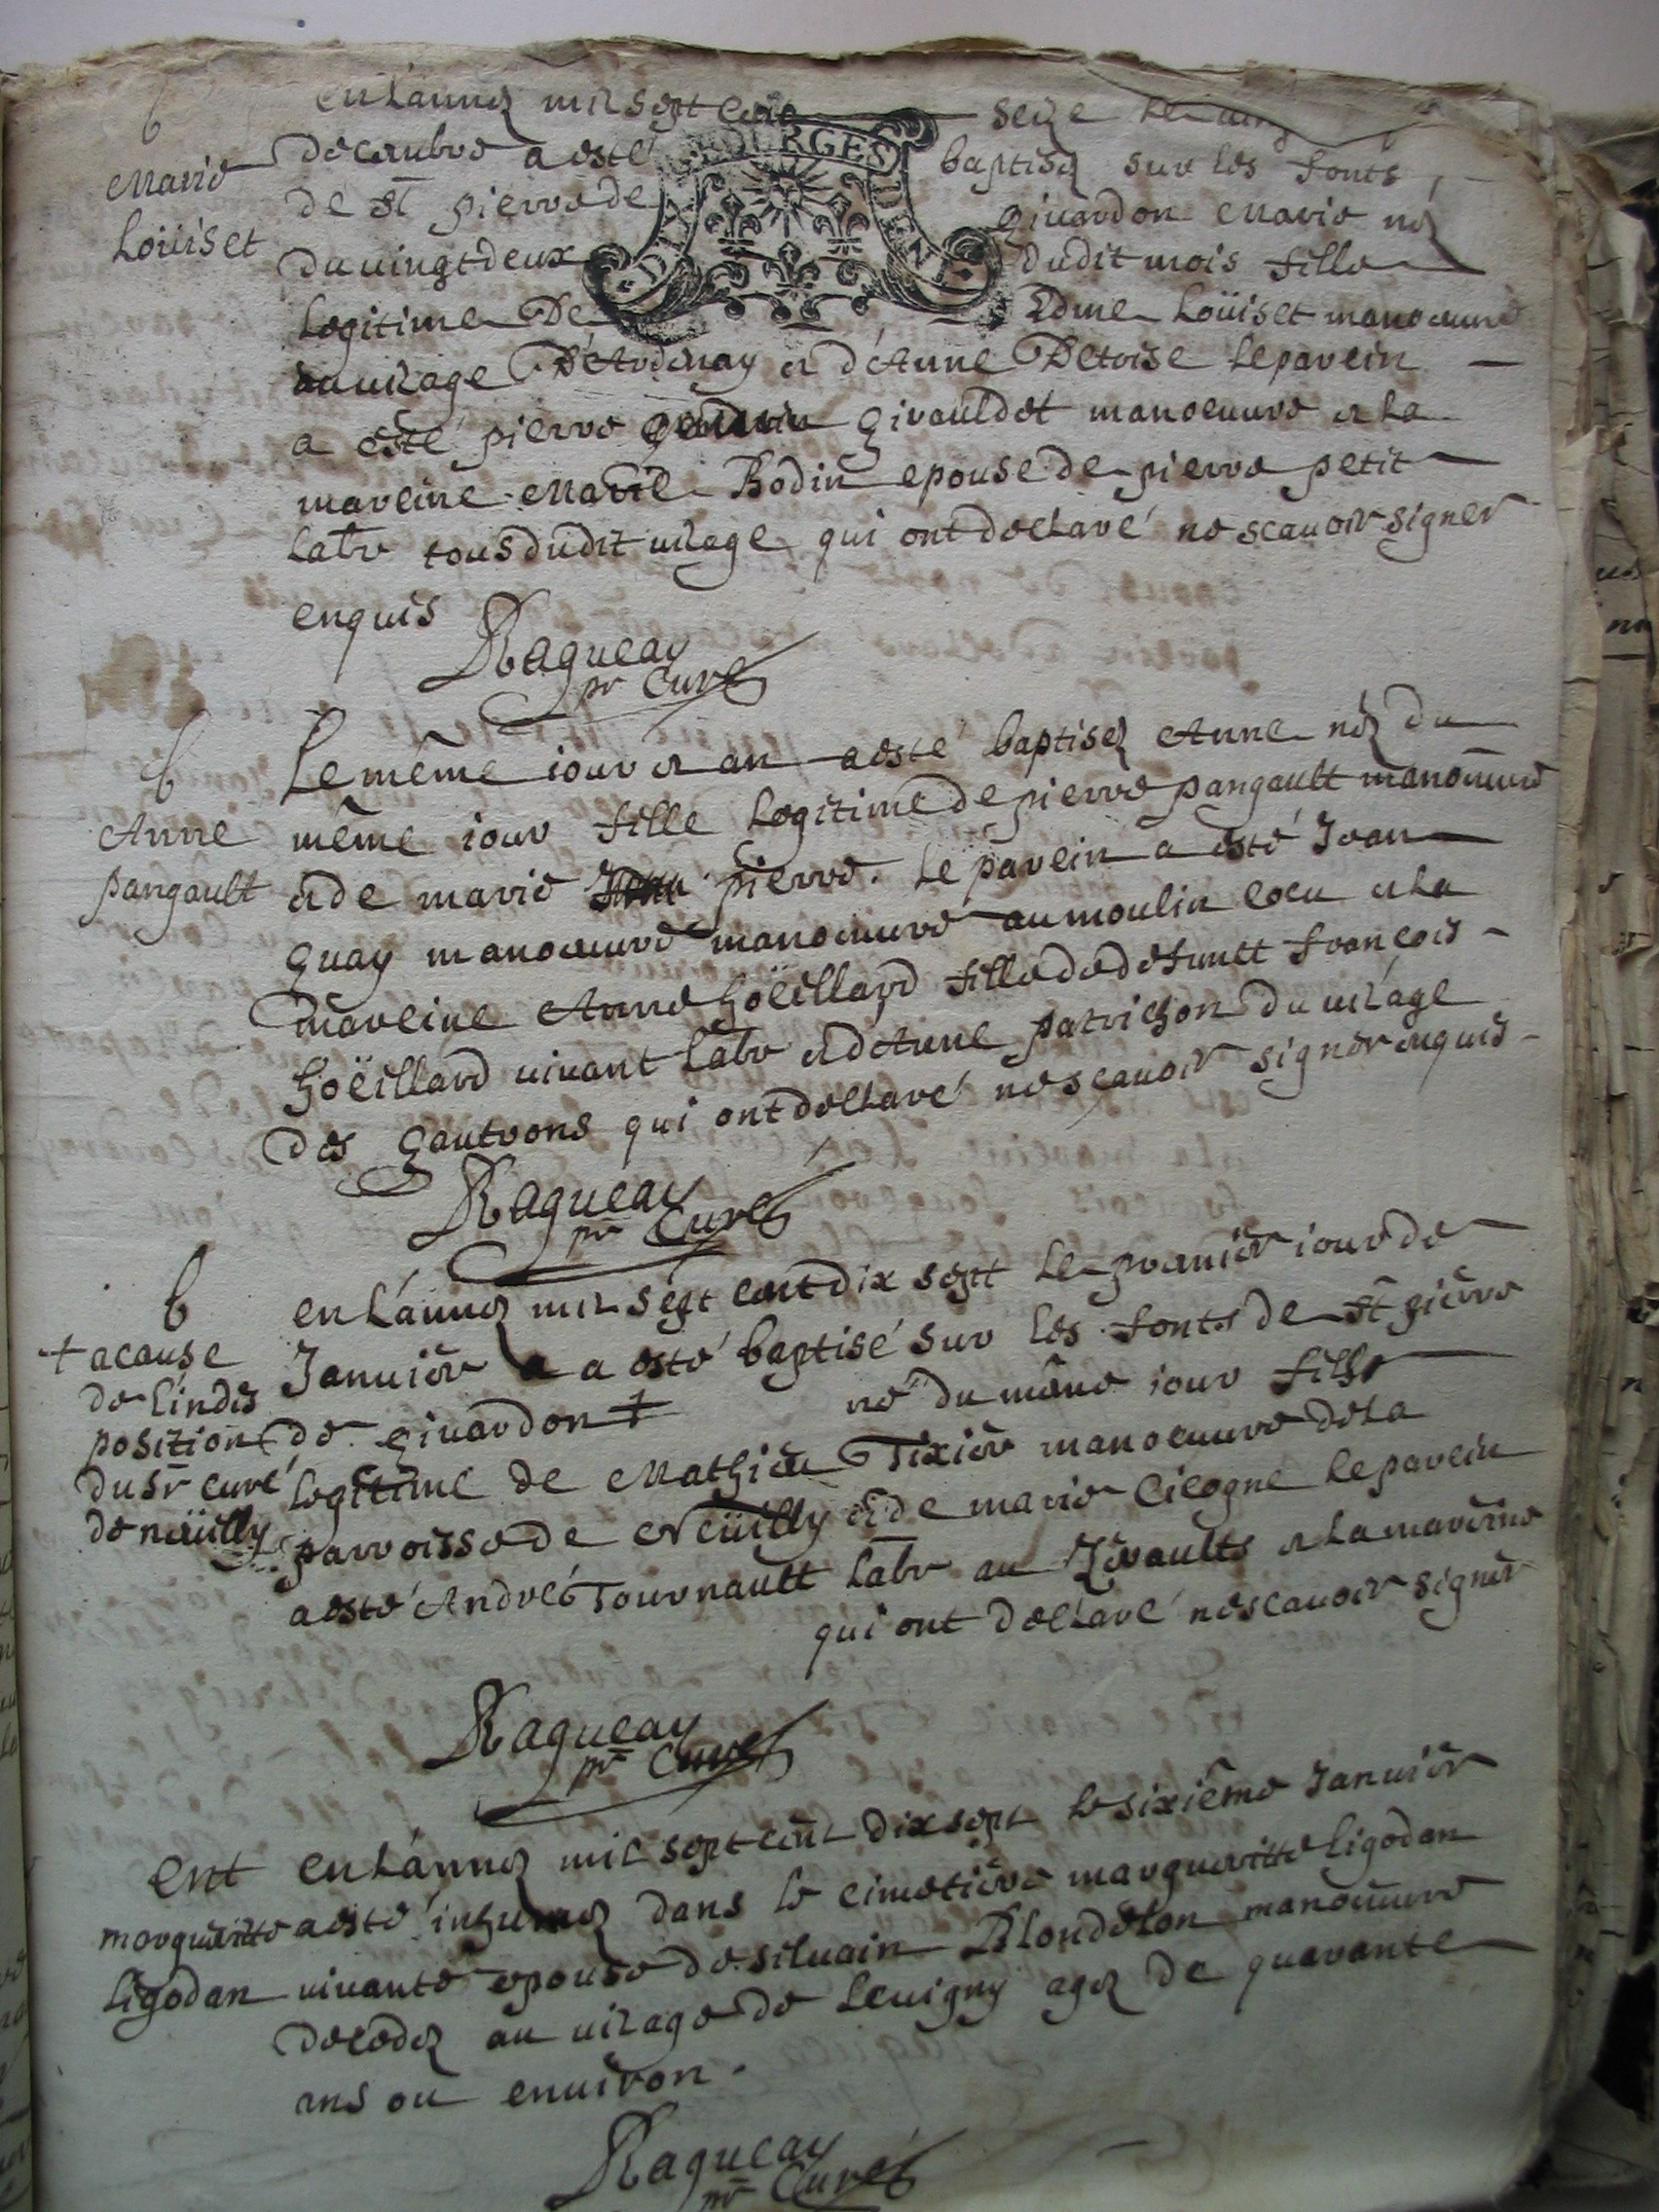 b
Marie
Loüiset
en Lanneé mil sept cent seize le
decembre a esté baptiseé sur les fonts
de st pierre de givardon Marie neé
du uingt deux dudit mois fille
legitime De Edme Loüiset manoeuure
au uilage D'Ardenay et d'Anne Detoise Le parein
a esté pierre girauldet manoeuure et La
mareine Marie Bodin epouse de pierre petit
Labr tous dudit uilage qui ont declaré ne scauoir signer
enquis
Ragueau
pr Curé
b
Anne
pangault
Le même iour et an a esté baptiseé Anne neé du
même iour fille Legitime de pierre pangault manoeuure
et de marie pierre. Le parein a esté Jean
guay manoeuure manoeuure au moulin cocu et La
mareine Anne hoëillard fille de defunct françois
hoëillard uiuant Labr et d'Anne patrichon du uilage
des gautrons qui ont declaré ne scauoir signer enquis
Ragueau
pr Curé
b
+ acause
de Lindis
position
du sr curé
de neüilly
en Lanneé mil sept cent dix sept Le premier iour de
Januier a esté baptisé sur Les fonts de st pierre
de givardon + né du même iour fils
Legitime de Mathieu Tixier manoeuure de La
parroisse de Neüilly et de marie Cicogne Le parein
a esté André Tournault Labr au et La mareine
qui ont declaré ne scauoir signer
Ragueau
pr Curé
ent
margueritte
Ligodan
en Lanneé mil sept cent dix sept Le sixiéme Januier
a esté inhumeé dans Le cimetiere margueritte Ligodan
uiuante epouse de siluain Blondelon manoeuure
decedeé au uilage de Leuigny ageé de quarante
ans ou enuiron.
Ragueau
pr Curé